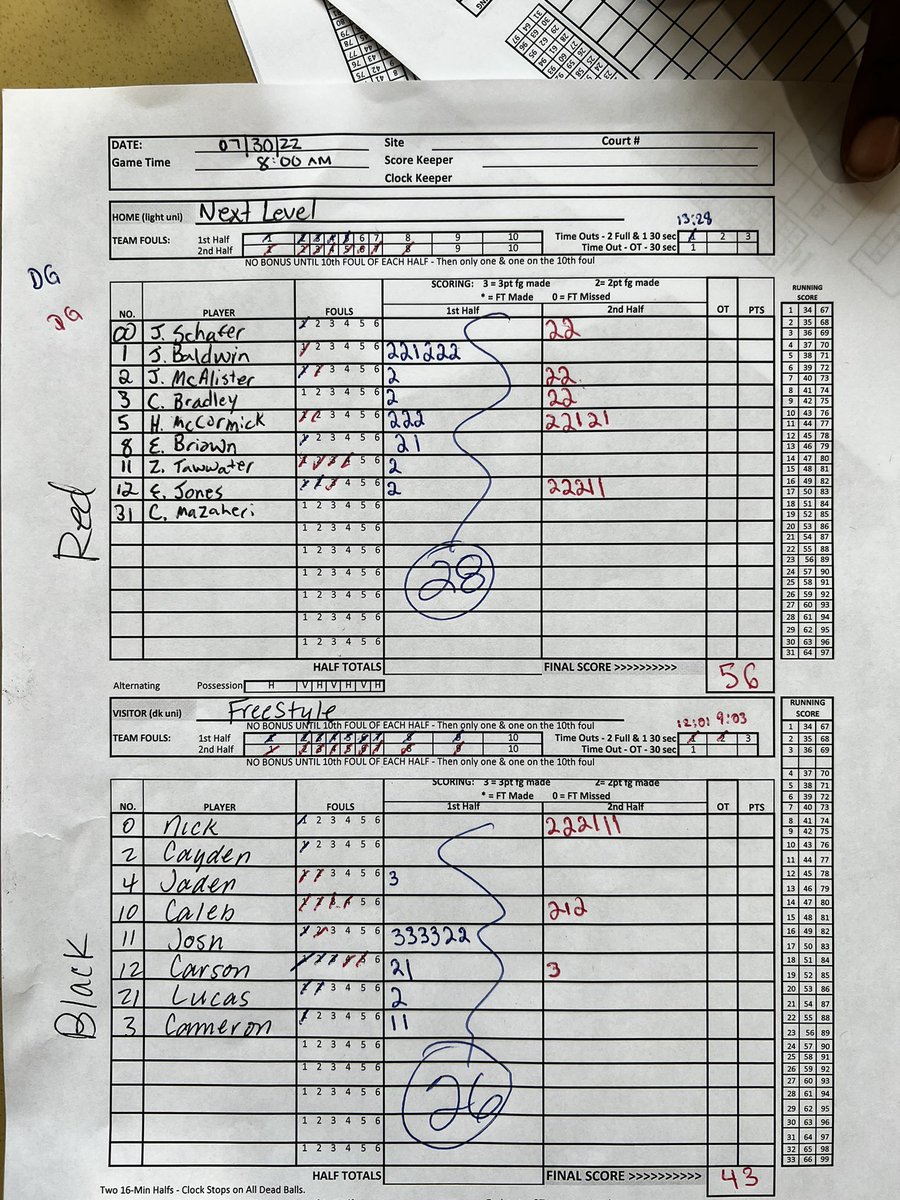 DATE: 07/30/22 Site Court #
Game Time 8:00 AM Score Keeper
Clock Keeper
HOME (light uni) Next Level 13:28
TEAM FOULS: 1st Half 1 2 3 4 5 6 7 8 9 10 Time Outs - 2 Full & 1 30 sec 1 2 3
2nd Half 1 2 3 4 5 6 7 8 9 10 Time Out - OT - 30 sec 1
NO BONUS UNTIL 10th FOUL OF EACH HALF - Then only one & one on the 10th foul
DG
DG
SCORING: 3 = 3pt fg made 2= 2pt fg made
* = FT Made 0 = FT Missed
NO. PLAYER FOULS 1st Half 2nd Half OT PTS
00 J. Schafer 1 2 3 4 5 6 22
1 J. Baldwin 1 2 3 4 5 6 221222
2 J. McAlister 1 2 3 4 5 6 2 22
3 C. Bradley 1 2 3 4 5 6 2 22
5 H. McCormick 1 2 3 4 5 6 222 22121
8 E. Briown 1 2 3 4 5 6 21
11 Z. Tawwater 1 2 3 4 5 6 2
12 E. Jones 1 2 3 4 5 6 2 22211
31 C. Mazaheri 1 2 3 4 5 6
1 2 3 4 5 6
1 2 3 4 5 6
1 2 3 4 5 6
1 2 3 4 5 6
1 2 3 4 5 6
1 2 3 4 5 6
28
Red
HALF TOTALS FINAL SCORE >>>>>>>>>> 56
RUNNING
SCORE
1 34 67
2 35 68
3 36 69
4 37 70
5 38 71
6 39 72
7 40 73
8 41 74
9 42 75
10 43 76
11 44 77
12 45 78
13 46 79
14 47 80
15 48 81
16 49 82
17 50 83
18 51 84
19 52 85
20 53 86
21 54 87
22 55 88
23 56 89
24 57 90
25 58 91
26 59 92
27 60 93
28 61 94
29 62 95
30 63 96
31 64 97
Alternating Possession H V H V H V H
VISITOR (dk uni) FreeStyle 12:01 9:03
NO BONUS UNTIL 10th FOUL OF EACH HALF - Then only one & one on the 10th foul
TEAM FOULS: 1st Half 1 2 3 4 5 6 7 8 9 10 Time Outs - 2 Full & 1 30 sec 1 2 3
2nd Half 1 2 3 4 5 6 7 8 9 10 Time Out - OT - 30 sec 1
NO BONUS UNTIL 10th FOUL OF EACH HALF - Then only one & one on the 10th foul
SCORING: 3 = 3pt fg made 2= 2pt fg made
* = FT Made 0 = FT Missed
NO. PLAYER FOULS 1st Half 2nd Half OT PTS
0 Nick 1 2 3 4 5 6 222111
2 Cayden 1 2 3 4 5 6
4 Jaden 1 2 3 4 5 6 3
10 Caleb 1 2 3 4 5 6 212
11 Josh 1 2 3 4 5 6 333322
12 Carson 1 2 3 4 5 6 21 3
21 Lucas 1 2 3 4 5 6 2
3 Cameron 1 2 3 4 5 6 11
1 2 3 4 5 6
1 2 3 4 5 6
1 2 3 4 5 6
1 2 3 4 5 6
1 2 3 4 5 6
26
Black
HALF TOTALS FINAL SCORE >>>>>>>>>> 43
RUNNING
SCORE
1 34 67
2 35 68
3 36 69
4 37 70
5 38 71
6 39 72
7 40 73
8 41 74
9 42 75
10 43 76
11 44 77
12 45 78
13 46 79
14 47 80
15 48 81
16 49 82
17 50 83
18 51 84
19 52 85
20 53 86
21 54 87
22 55 88
23 56 89
24 57 90
25 58 91
26 59 92
27 60 93
28 61 94
29 62 95
30 63 96
31 64 97
32 65 98
33 66 99
Two 16-Min Halfs - Clock Stops on All Dead Balls.